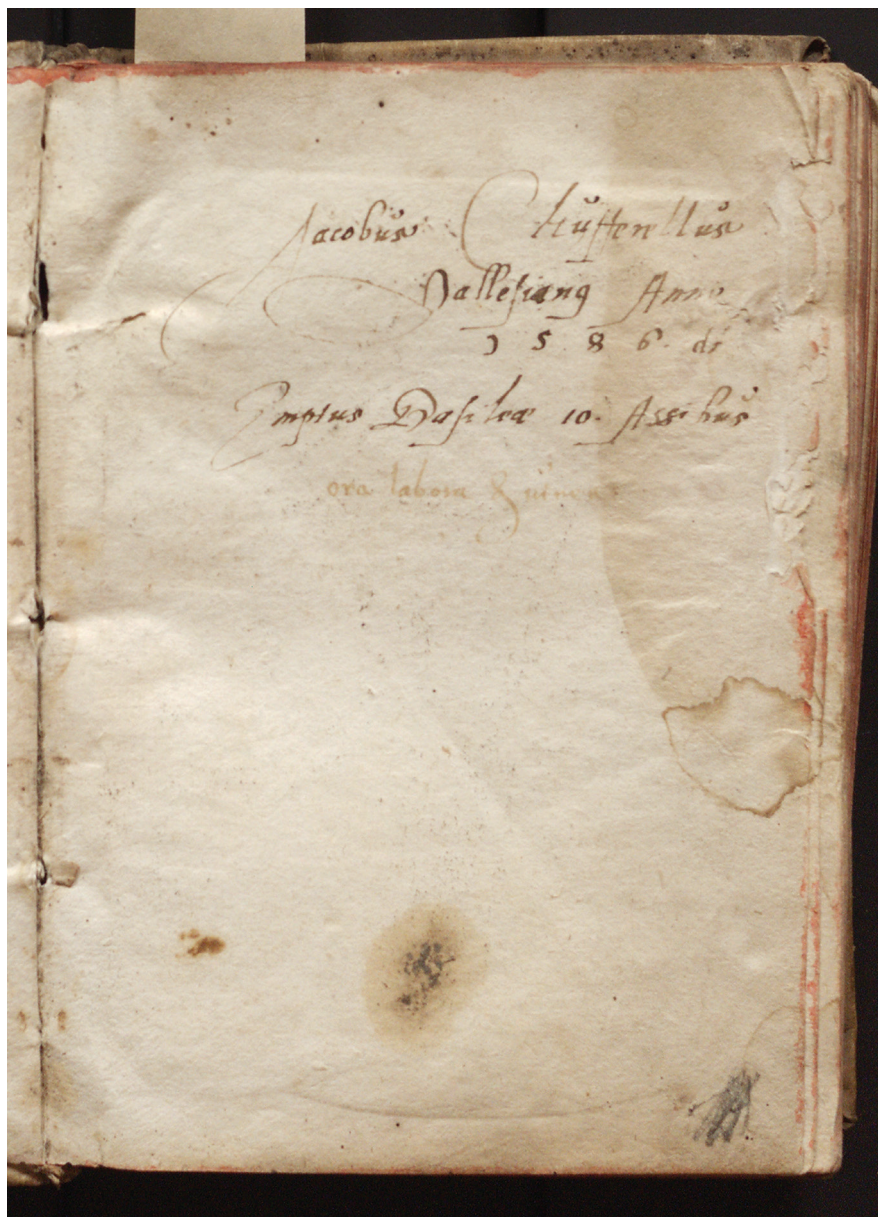 Jacobus
Vallesianꝰ Anno
1 5 8 6. di
Emptus Basileæ 10. Assibus
ora labora &